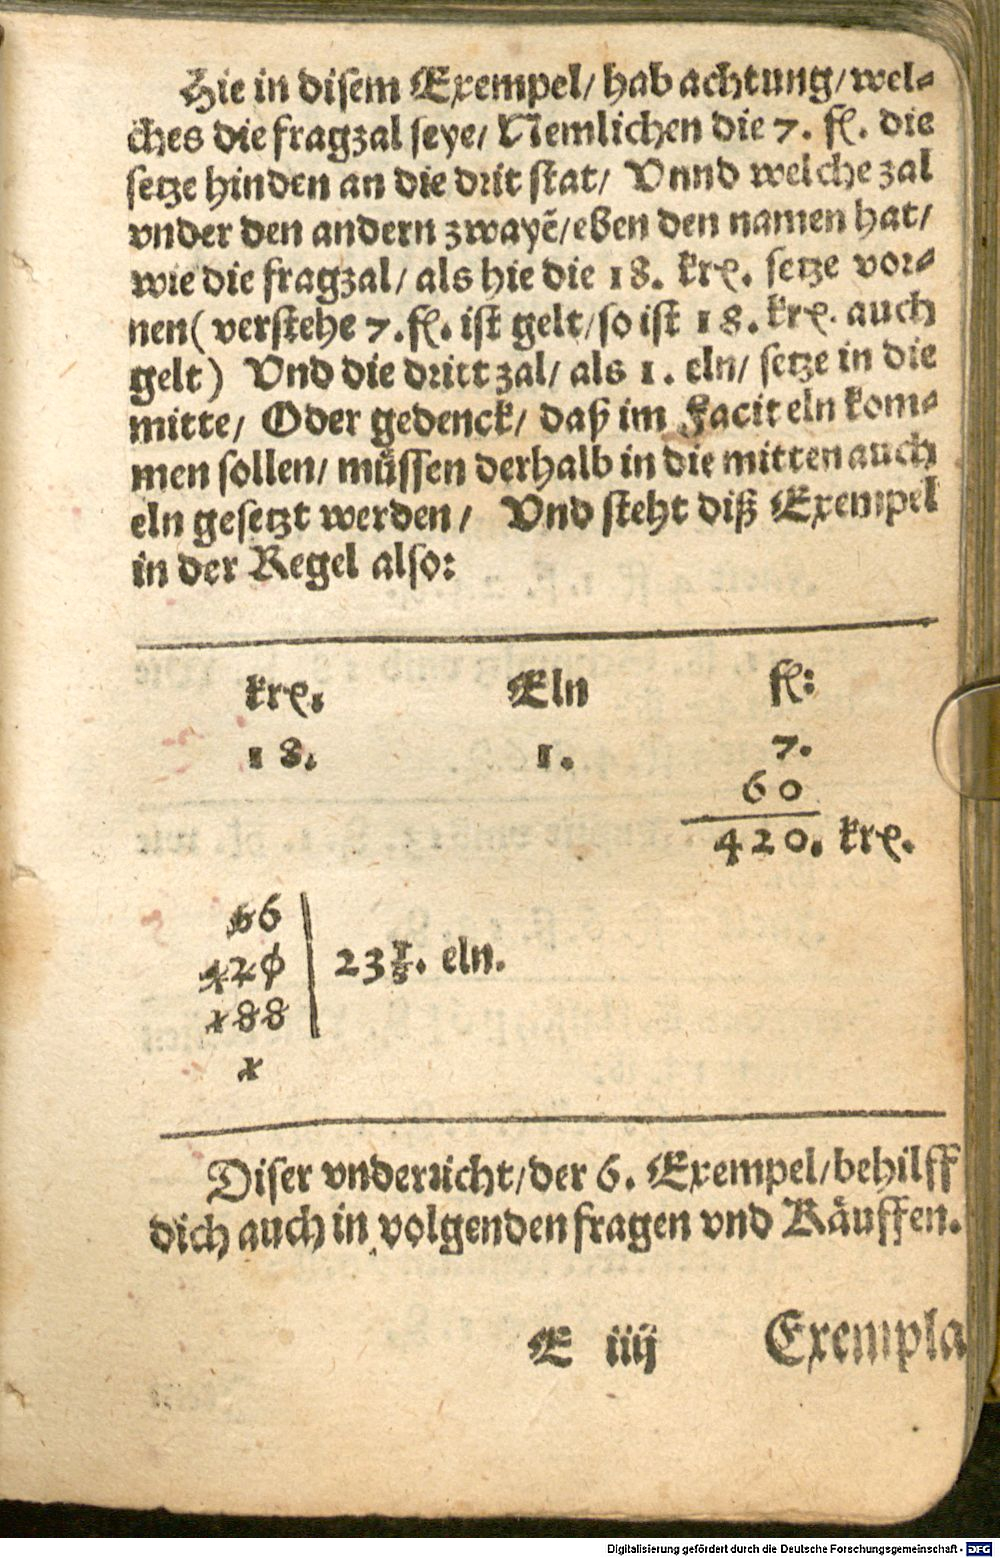 Hie in disem Exempel/ hab achtung/ wel⸗
ches die fragzal seye/ Nemlichen die 7. fl. die
setze hinden an die drit stat/ Vnnd welche zal
vnder den andern zwayẽ/ eben den namen hat/
wie die fragzal/ als hie die 18. krꝫ. setze vor⸗
nen( verstehe 7. fl. ist gelt/ so ist 18. krꝫ. auch
gelt) Vnd die dritt zal/ als 1. eln/ setze in die
mitte/ Oder gedenck/ daß im Facit eln kom⸗
men sollen/ müssen derhalb in die mitten auch
eln gesetzt werden/ Vnd steht diß Exempel
in der Regel also:
krꝫ. Eln fl:
18. 1. 7.
60
420. krꝫ.
66
420 | 23 1/3. eln.
188
1
Diser vnderricht/ der 6. Exempel/ behilff
dich auch in volgenden fragen vnd Käuffen.
E iiij Exempla
Digitalisierung gefördert durch die Deutsche Forschungsgemeinschaft - DFG